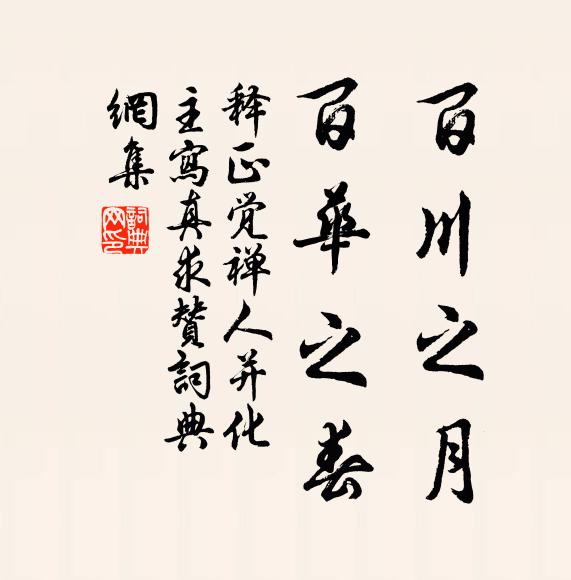 百川之月
百華之春
释正覚禅人并化
主寫真求贊詞典
網集
詞典
网印